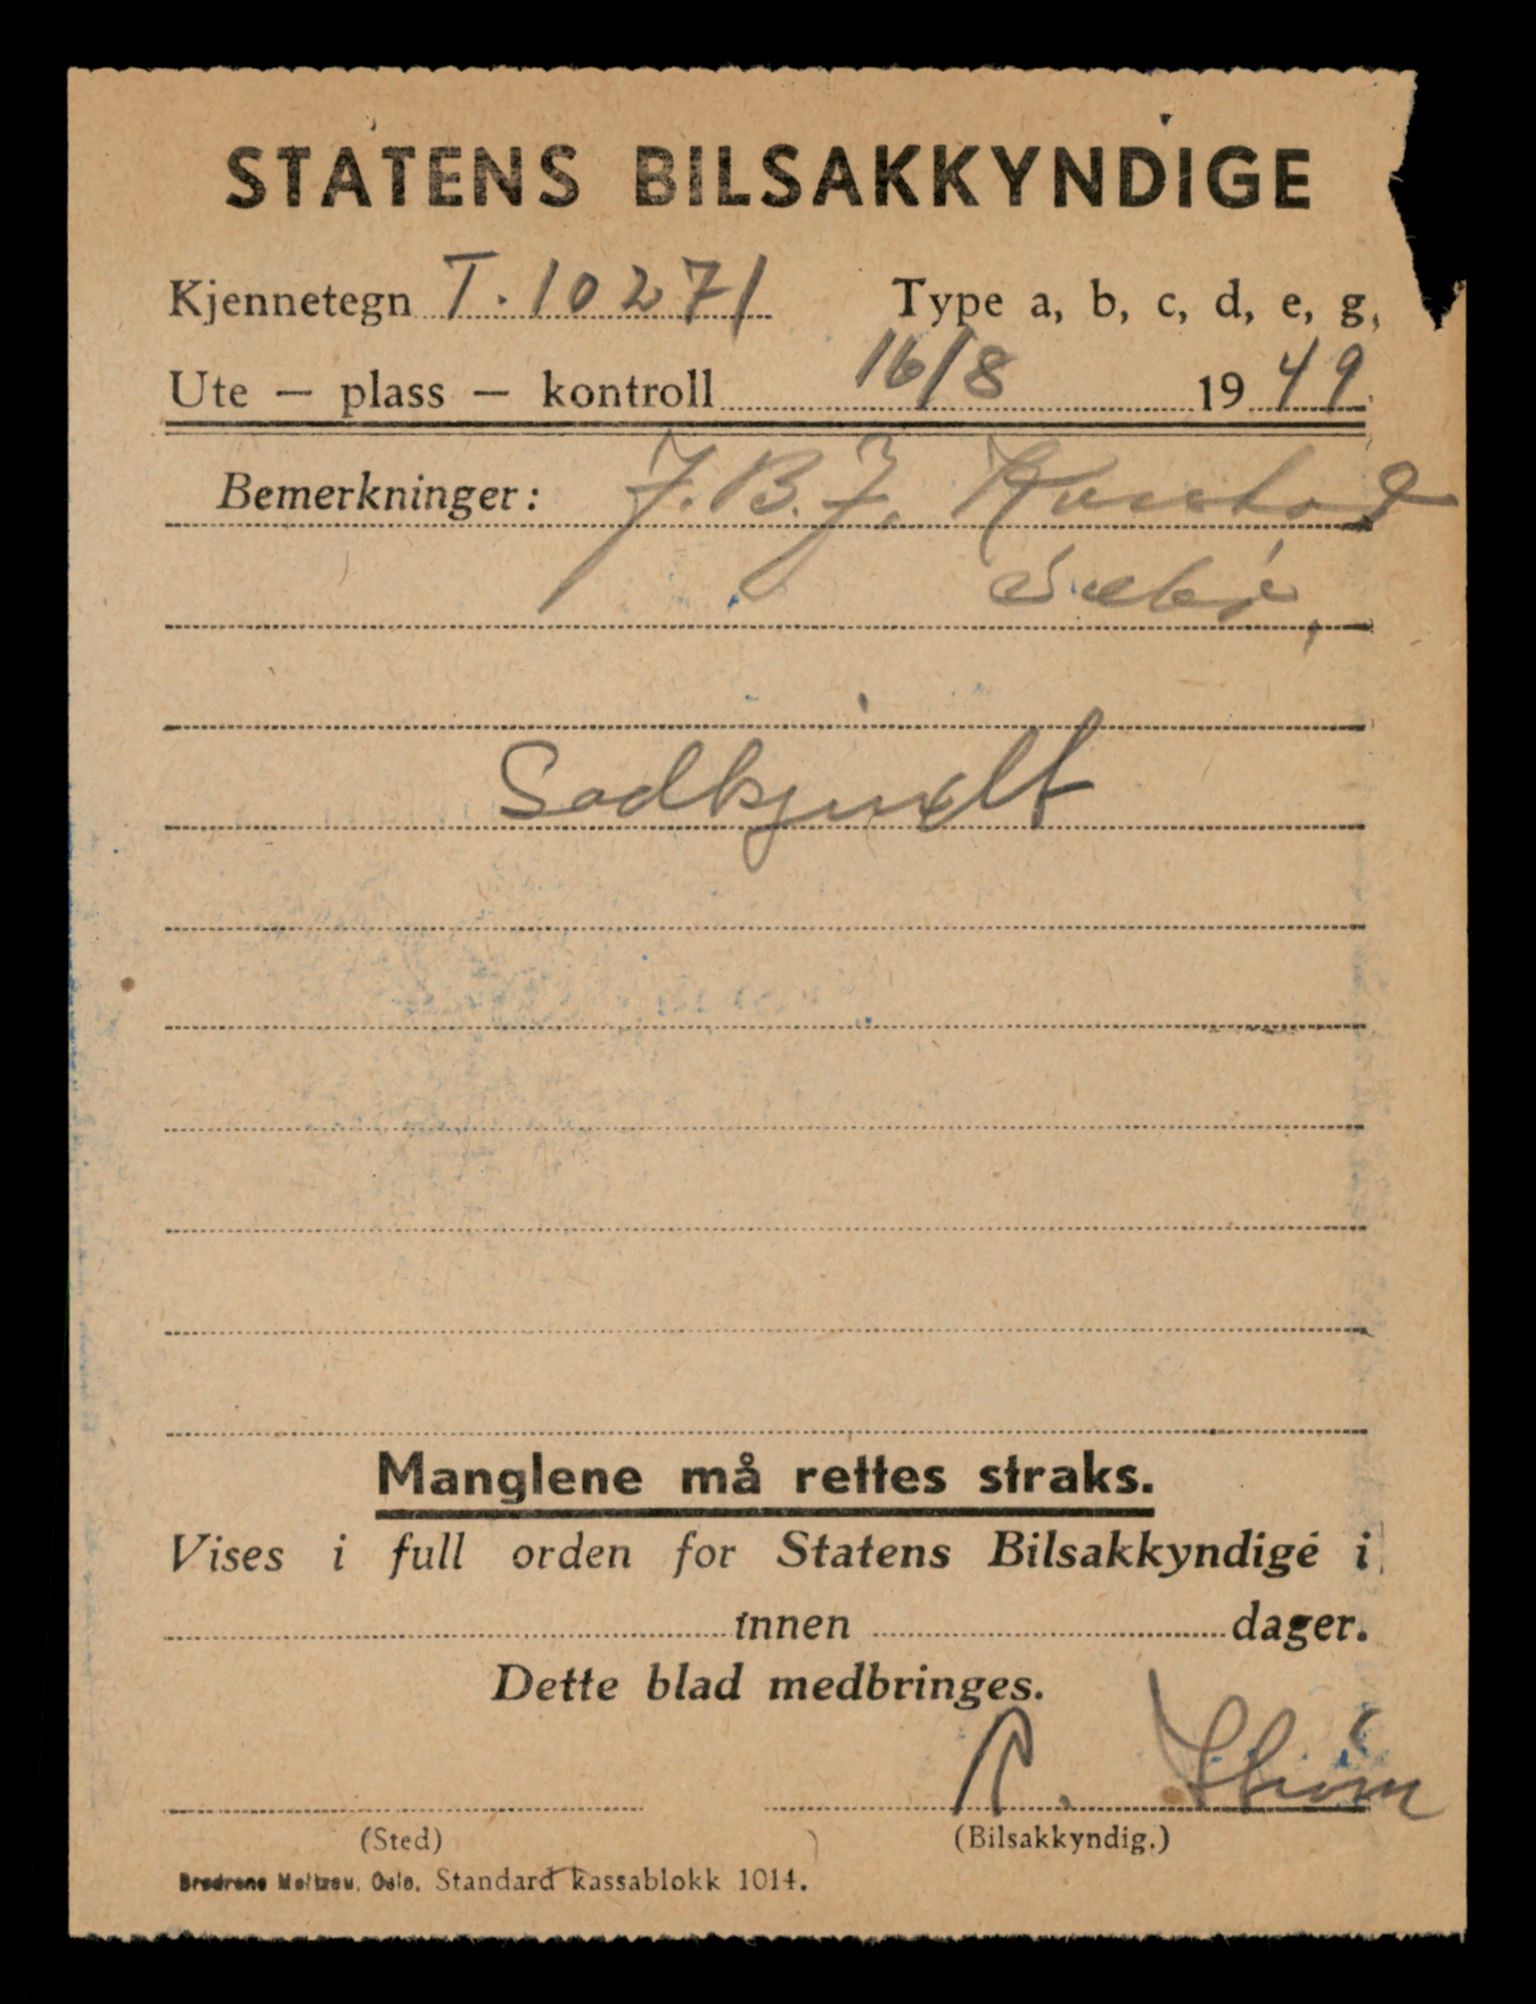 STATENS BILSAKKYNDIGE
Kjennetegn T. 10271 Type a, b, c, d, e, g,
Ute — plass — kontroll 16/8 1949
Bemerkninger: J. B. J.
Manglene må rettes straks.
Vises i full orden for Statens Bilsakkyndige i
innen dager.
Dette blad medbringes.
(Sted) (Bilsakkyndig.)
Brødrene Meltzau, Oslo. Standard kassablokk 1014.